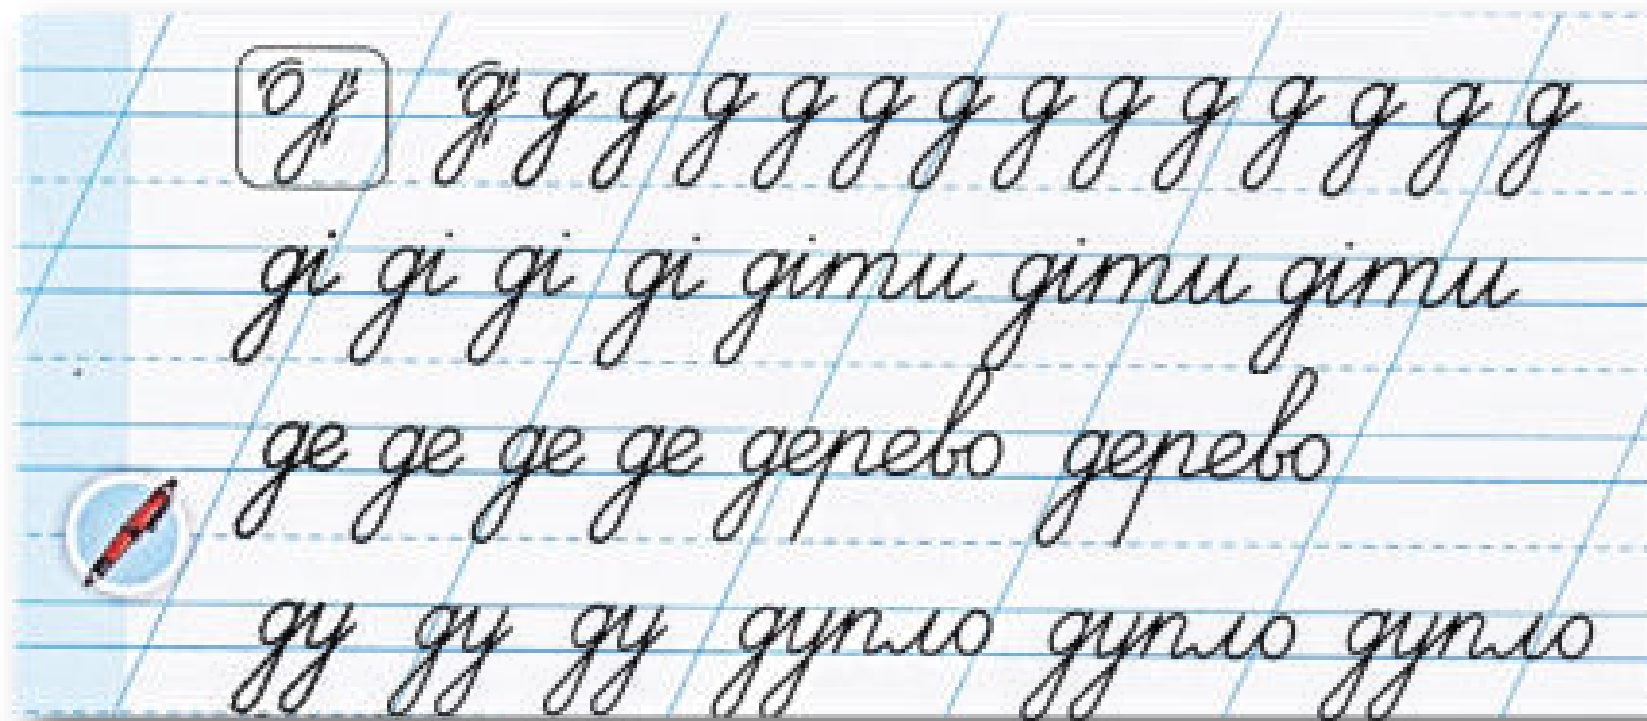 д д д д д д д д д д д д д д д
ді ді ді ді діти діти діти
де де де де дерево дерево
ду ду ду дупло дупло дупло